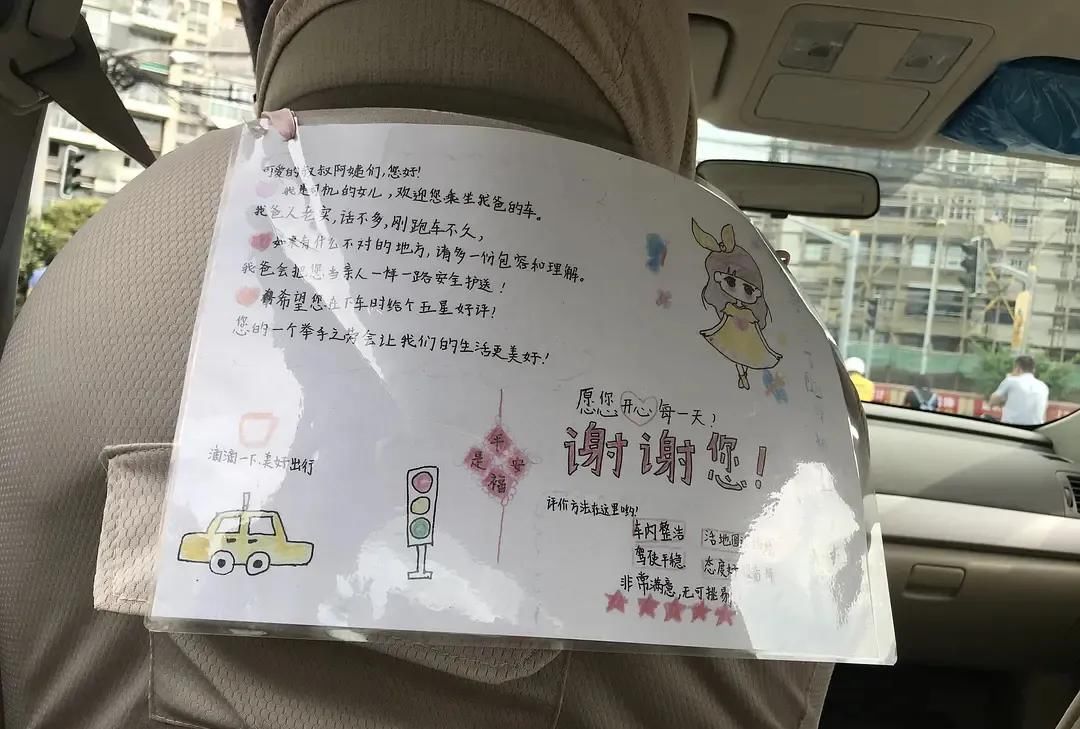 可爱的叔叔阿姨们,您好!
我是司机的女儿,欢迎您乘坐我爸的车。
我爸人老实,话不多,刚跑车不久,
如果有什么不对的地方,请多一份包容和理解。
我爸会把您当亲人一样一路安全护送!
希望您在下车时给个五星好评!
您的一个举手之劳会让我们的生活更美好!
愿您开心每一天!
谢谢您!
平安是福
滴滴一下,美好出行
评价方法在这里哟!
车内整洁 活地图
驾驶平稳 态度好
非常满意,无可挑剔